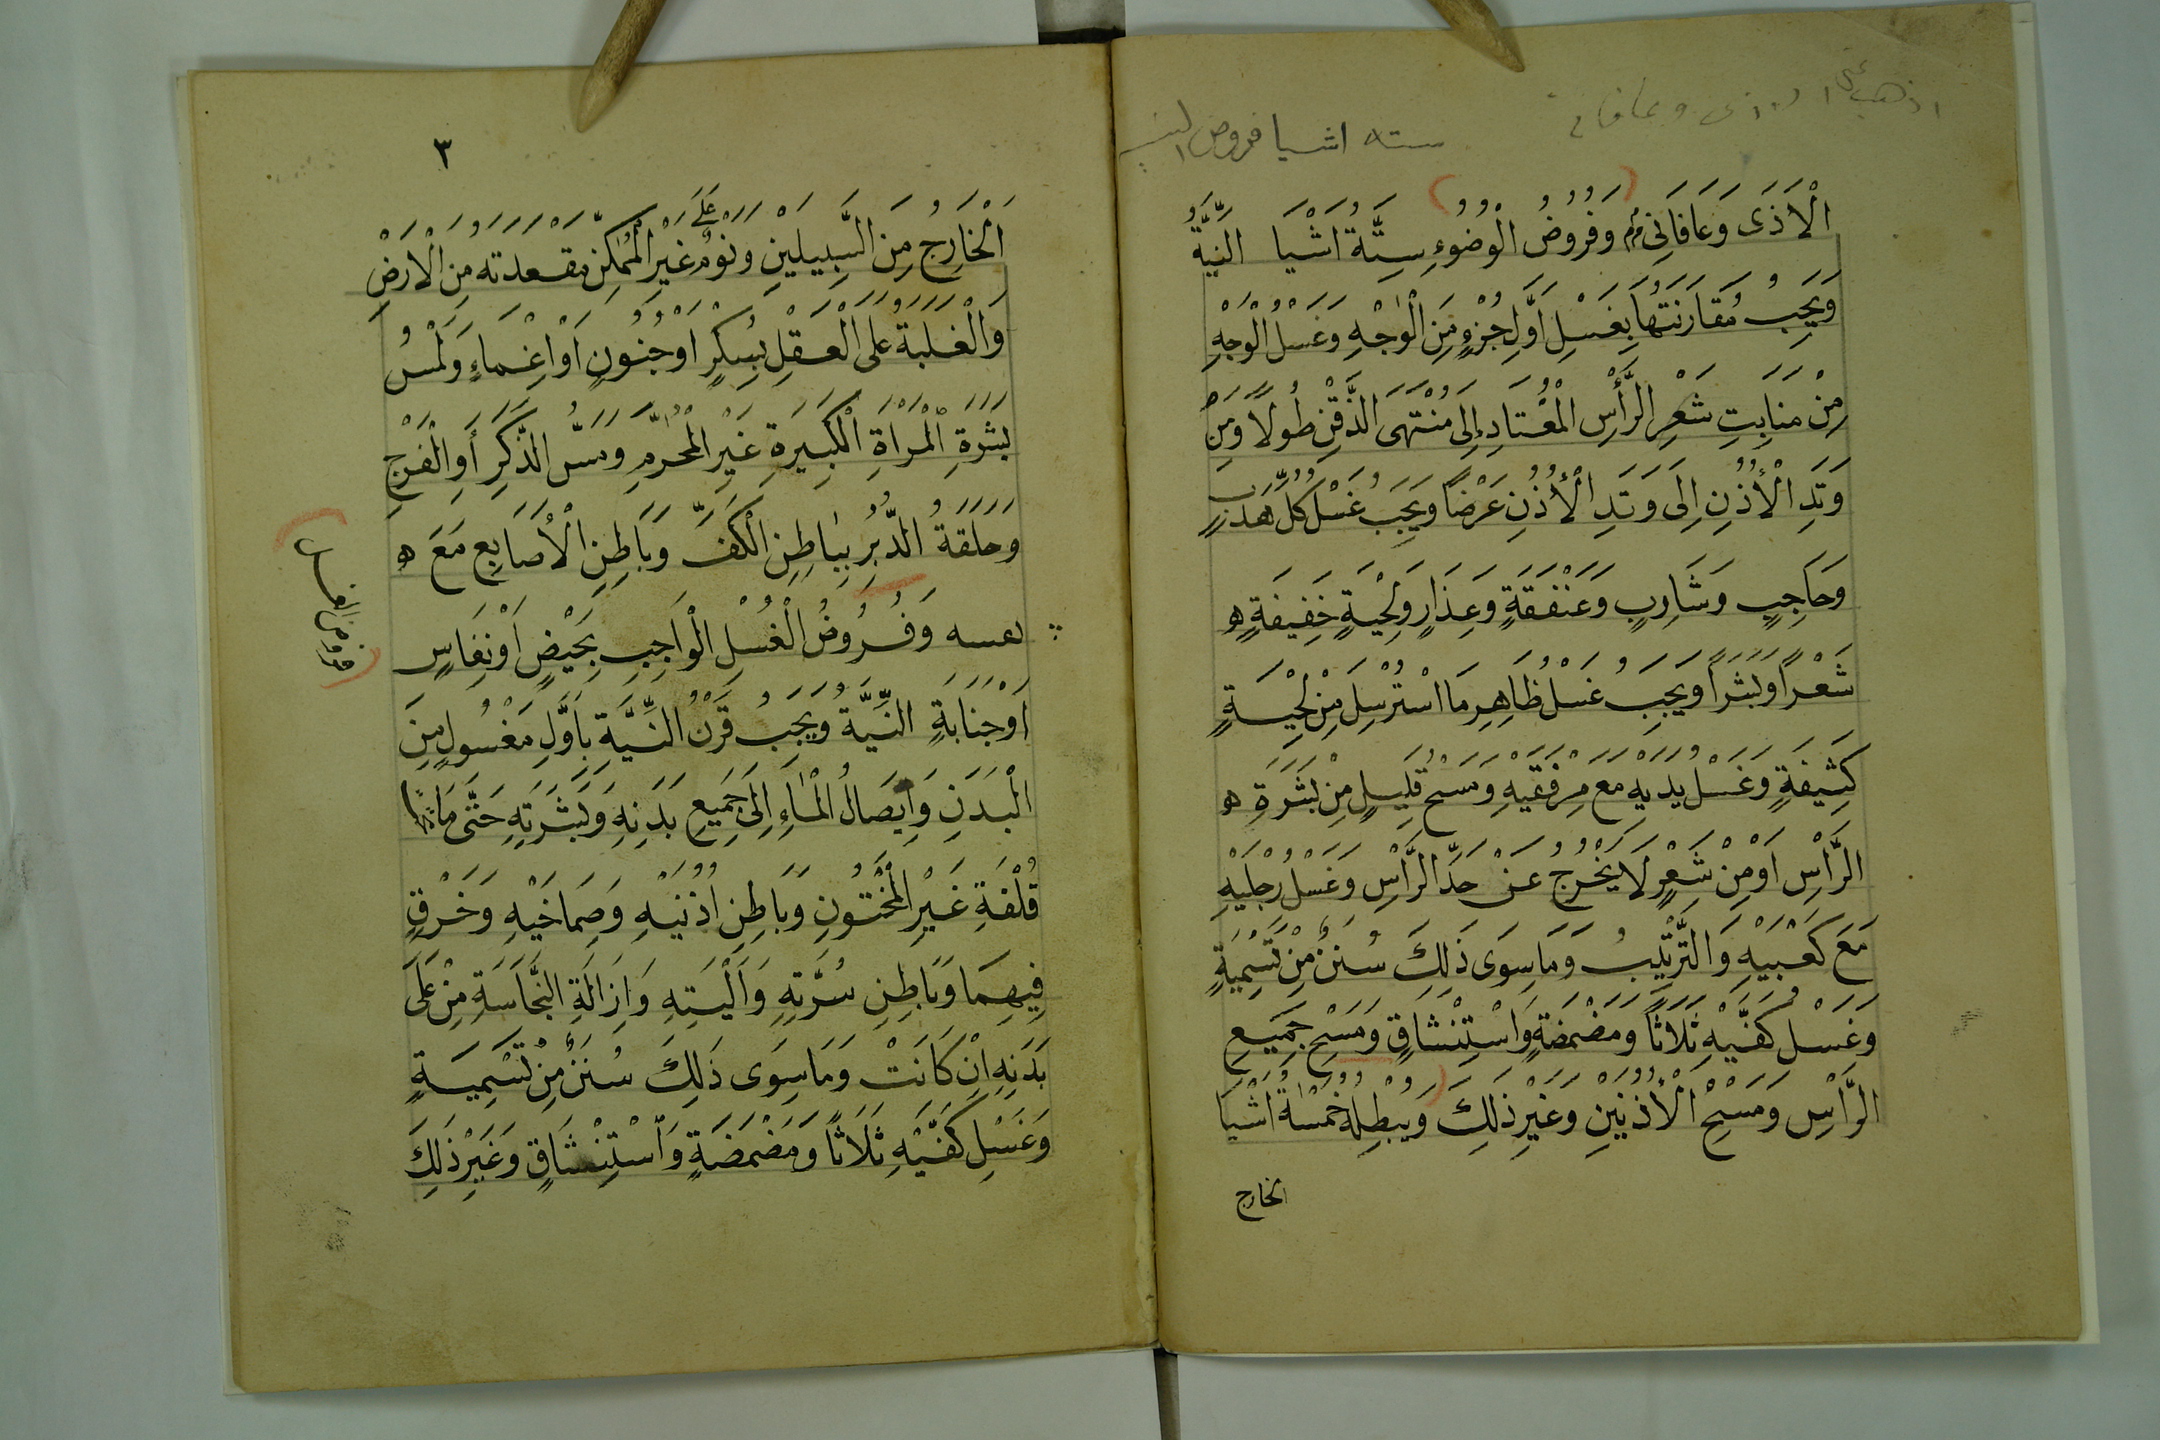 اذهب عني الاذى وعافاني
سته اشيا فروض
الْاَذَى وَعَافَانِى وَفُرُوضُ الْوُضُوءِ سِتَّةُ اَشْيَا النِّيَّةُ
وَيَجِبُ مُقَارَنَتُهَا بِغَسْلِ اَوَّلِ جُزْءٍ مِنَ الْوَجْهِ وَغَسْلُ الْوَجْهِ
مِنْ مَنَابِتِ شَعْرِ الرَّأْسِ الْمُعْتَادِ إِلَى مُنْتَهَى الذَّقْنِ طُولاً وَمِنْ
وَتَدِ الْأُذُنِ اِلَى وَتَدِ الْأُذُنِ عَرْضًا وَيَجِبُ غَسْلُ كُلِّ هُدْبٍ
وَحَاجِبٍ وَشَارِبٍ وَعَنْفَقَةٍ وَعِذَارٍ وَلِحْيَةٍ خَفِيفَةٍ
شَعْرًا وَبَشَرًا وَيَجِبُ غَسْلُ ظَاهِرِ مَا اسْتَرْسَلَ مِنْ لِحْيَةٍ
كَثِيفَةٍ وَغَسْلُ يَدَيْهِ مَعَ مِرْفَقَيْهِ وَمَسْحُ قَلِيلٍ مِنْ بَشَرَةِ
الرَّأْسِ اَوْ مِنْ شَعْرٍ لَا يَخْرُجُ عَنْ حَدِّ الرَّأْسِ وَغَسْلُ رِجْلَيْهِ
مَعَ كَعْبَيْهِ وَالتَّرْتِيبُ وَمَا سِوَى ذَلِكَ سُنَنٌ مِنْ تَسْمِيَةٍ
وَغَسْلِ كَفَّيْهِ ثَلَاثًا وَمَضْمَضَةٍ وَاسْتِنْشَاقٍ وَمَسْحِ جَمِيعِ
الرَّأْسِ وَمَسْحِ الْأُذُنَيْنِ وَغَيْرِ ذَلِكَ وَيُبْطِلُهُ خَمْسَةُ اَشْيَا
الخارج
٣
اَلْخَارِجُ مِنَ السَّبِيلَيْنِ وَنَوْمُ غَيْرِ الْمُمَكِّنِ مَقْعَدَتَهُ مِنَ الْاَرْضِ
وَالْغَلَبَةُ عَلَى الْعَقْلِ بِسُكْرٍ اَوْ جُنُونٍ اَوْ اِغْمَاءٍ وَلَمْسُ
بَشَرَةِ الْمَرْاَةِ الْكَبِيرَةِ غَيْرِ الْمَحْرَمِ وَمَسُّ الذَّكَرِ أَوِ الْفَرْجِ
وَحَلَقَةُ الدُّبُرِ بِبَاطِنِ الْكَفِّ وَبَاطِنِ الْأَصَابِعِ مَعَ
وَفُرُوضُ الْغُسْلِ الْوَاجِبِ بِحَيْضٍ اَوْ نِفَاسٍ
اَوْ جَنَابَةٍ النِّيَّةُ وَيَجِبُ قَرْنُ النِّيَّةِ بِاَوَّلِ مَغْسُولٍ مِنَ
الْبَدَنِ وَاِيصَالُ الْمَاءِ اِلَى جَمِيعِ بَدَنِهِ وَبَشَرَتِهِ حَتَّى
قُلْفَةِ غَيْرِ الْمَخْتُونِ وَبَاطِنِ اُذُنَيْهِ وَصِمَاخَيْهِ وَخَرْقٍ
فِيهِمَا وَبَاطِنِ سُرَّتِهِ وَاَلْيَتِهِ وَاِزَالَةِ النَّجَاسَةِ مِنْ عَلَى
بَدَنِهِ اِنْ كَانَتْ وَمَا سِوَى ذَلِكَ سُنَنٌ مِنْ تَسْمِيَةٍ
وَغَسْلِ كَفَّيْهِ ثَلَاثًا وَمَضْمَضَةٍ وَاسْتِنْشَاقٍ وَغَيْرِ ذَلِكَ